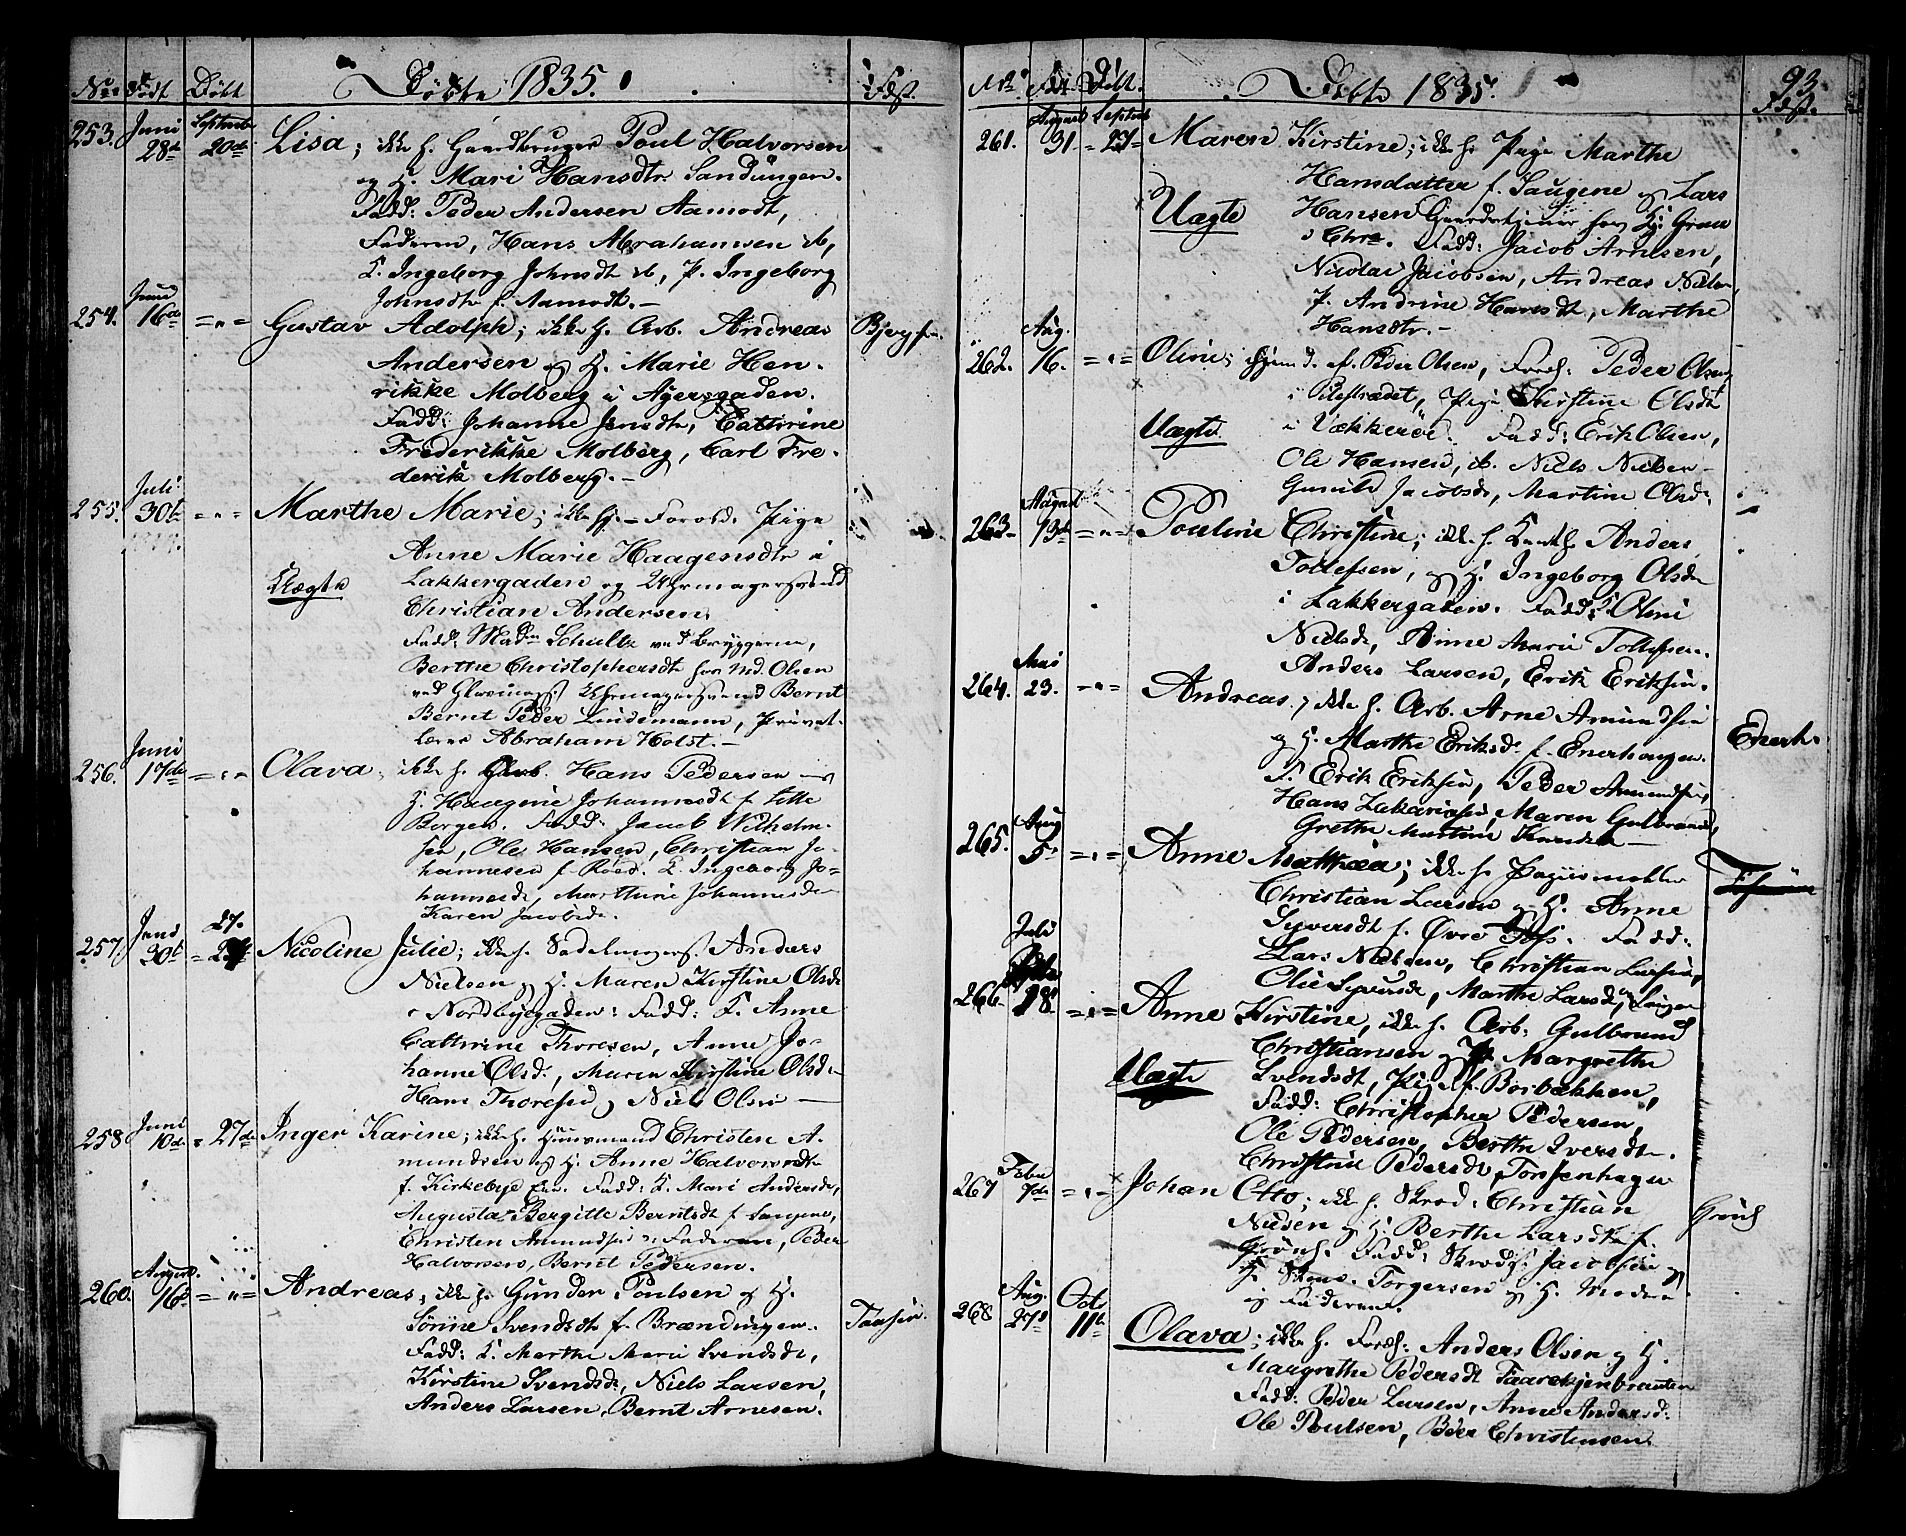 No. Født Døbt Døbte 1835. Fdst.
253. Juni 28de Septembr 20de Lisa; ikke f. Gaardbruger Poul Halvorsen
og H. Mari Hansdtr Sandungen.
Fadd: Peder Andersen Aamodt,
Faderen, Hans Abrahamsen ib,
K. Ingeborg Johnsdtr ib, P. Ingeborg
Johnsdtr f. Aamodt.—
254. Juni 16de = " = Gustav Adolph; ikke f. Arb. Andreas
Andersen og H. Marie Hen-
rikke Molberg i Agersgaden.
Fadd: Johanne Jensdtr, Cathrine
Frederikke Molberg, Carl Fre-
derik Molberg.—
255. Juli 30te = " = Marthe Marie; ikke hj.— Forældr. Pige
Anne Marie Haagensdtr i
Uægte Lakkergaden og Uhrmagersvend
Christian Andersen,
Fadd: Madm Schultz ved Bryggerne,
Berthe Christophersdtr hos Md. Olsen
ved Glasmag. Uhrmagersvend Bernt
Bernt Peder Lindemann, Privat-
lærer Abraham Holst.—
256. Juni 17de = " = Olava, ikke f. Hans Pedersen og
H. Haagine Johannesdt f. Lille
Borgen. Fadd: Jacob Wilhelm-
sen, Ole Hansen, Christian Jo-
hannesen f. Røed. K. Ingeborg Jo-
hannesdt, Marthine Johannesdr
Karen Jacobsdr.
257. Juni 30te 27. Nicoline Julie; ikke f. Sadelmagers. Anders
Nielsen og H. Maren Kirstine Olsdr
i Nordbyegaden: Fadd: K. Anne
Cathrine Thoresen, Anne Jo-
hanne Olsdr, Maren Kirstine Olsdr
Hans Thoresen og Niels Olsen —
258 Juni 10de = 27de Inger Karine; ikke f. Huusmand Christen A-
mundsen og H. Anne Halvorsdtr
f. Kirkebye Fadd: K. Mari Andersdr,
Augusta Bergitte Berntsdt f. Saugene,
Christen Amundsen Faderen, Peder
Halvorsen, Bernt Pedersen.
260. August 16de = " = Andreas, ikke f. Gunder Poulsen og H.
Sørine Svendsdt f. Brændingen.. Taasen.
Fadd: K. Marthe Marie Svendsdr,
Kirstine Svendsdr, Niels Larsen,
Anders Larsen, Bernt Arnesen.
No. Født. Døbt. Døbte 1835. 93. Fdst.
261. August 31. Septbr = 27 = Maren Kirstine; ikke f. Pige Marthe
Hansdatter f. Saugene og Lars
Uægte Hansen Gaardskjører hos H. Gran
i Chra. Fadd: Jacob Arnesen,
Nicolai Jacobsen, Andreas Nielsen,
P. Andrine Hansdt, Marthe
Hansdtr.—
262. Aug. 16. = " = Oline; af Peder Olsen, Foræld: Peder Olsen
i Pilestrædet, Pige Kirstine Olsdt
Uægte i Vækkerøe. Fadd: Erik Olsen,
Ole Hansen, ib. Niels Nielsen
Gunild Jacobsdr, Martine Olsdr
263. August 13de = " = Pouline Christine; ikke f. Anders
Tollefsen, og H. Ingeborg Olsdr
i Lakkergaden. Fadd: K. Oline
Nielsdr, Anne Marie Tollefsen.
Anders Larsen, Erik Eriksen.
264. Mai 23. = " = Andreas, ikke f. Arb. Arne Amundsen
og H. Marthe Eriksdr f. Enerhougen. Enerh.
F. Erik Eriksen, Peder Amundsen,
Hans Zakariasen, Maren Gulbrands,
Grethe Martine
265. Aug 5te = " = Anne Mathea; ikke f.
Christian Larsen og H. Anne
Syversdt f. Øvre Foss. Fadd:
Lars Nielsen, Christian Larsen,
Olie Syversdr, Marthe Larsdr
266. Juli 18 = " = Anne Kirstine, ikke f. Arb: Gulbrand
Christiansen og P. Margrethe
Uægte Svendsdt, Pige f. Borbækken,
Fadd: Christopher Pedersen,
Ole Pedersen, Berthe Iversdtr.
Christine Pedersdt, Torshaugen
267 Febr 7de = " = Johan Otto; ikke f. Skræd. Christian
Nielsen og H. Berthe Larsdtr f. Grønl
Grønl. Fadd: Skrædf. Jacobsen
Torgersen og H. Moderen
og Faderen.
268 Aug. 27de Octo 11te Olava; ikke f. Foræld: Anders Olsen og H.
Margrethe Pedersdt Taarekjenbraaten
Fadd: Peder Larsen, Anne Andersd:
Ole Poulsen, Peder Christensen.